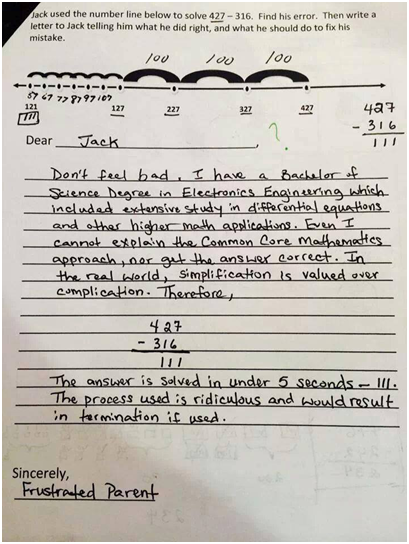 Jack used the number line below to solve 427 – 316. Find his error. Then write a
letter to Jack telling him what he did right, and what he should do to fix his
mistake.
100 100 100
57 67 77 87 97 107
121 127 227 327 427
111
427
- 316
111
Dear Jack, ?
Don't feel bad. I have a Bachelor of
Science Degree in Electronics Engineering which
included extensive study in differential equations
and other higher math applications. Even I
cannot explain the Common Core Mathematics
approach, nor get the answer correct. In
the real world, simplification is valued over
complication. Therefore,
427
- 316
111
The answer is solved in under 5 seconds – 111.
The process used is ridiculous and would result
in termination if used.
Sincerely,
Frustrated Parent